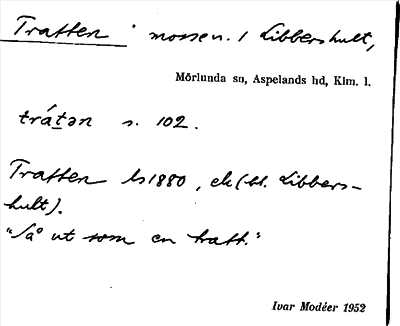 Tratten i mossen. 1 Libbershult,
Mörlunda sn, Aspelands hd, Klm. l.
trátən s. 102.
Tratten ls 1880, ek (bl. Libbers-
hult).
"Så ut som en tratt."
Ivar Modéer 1952